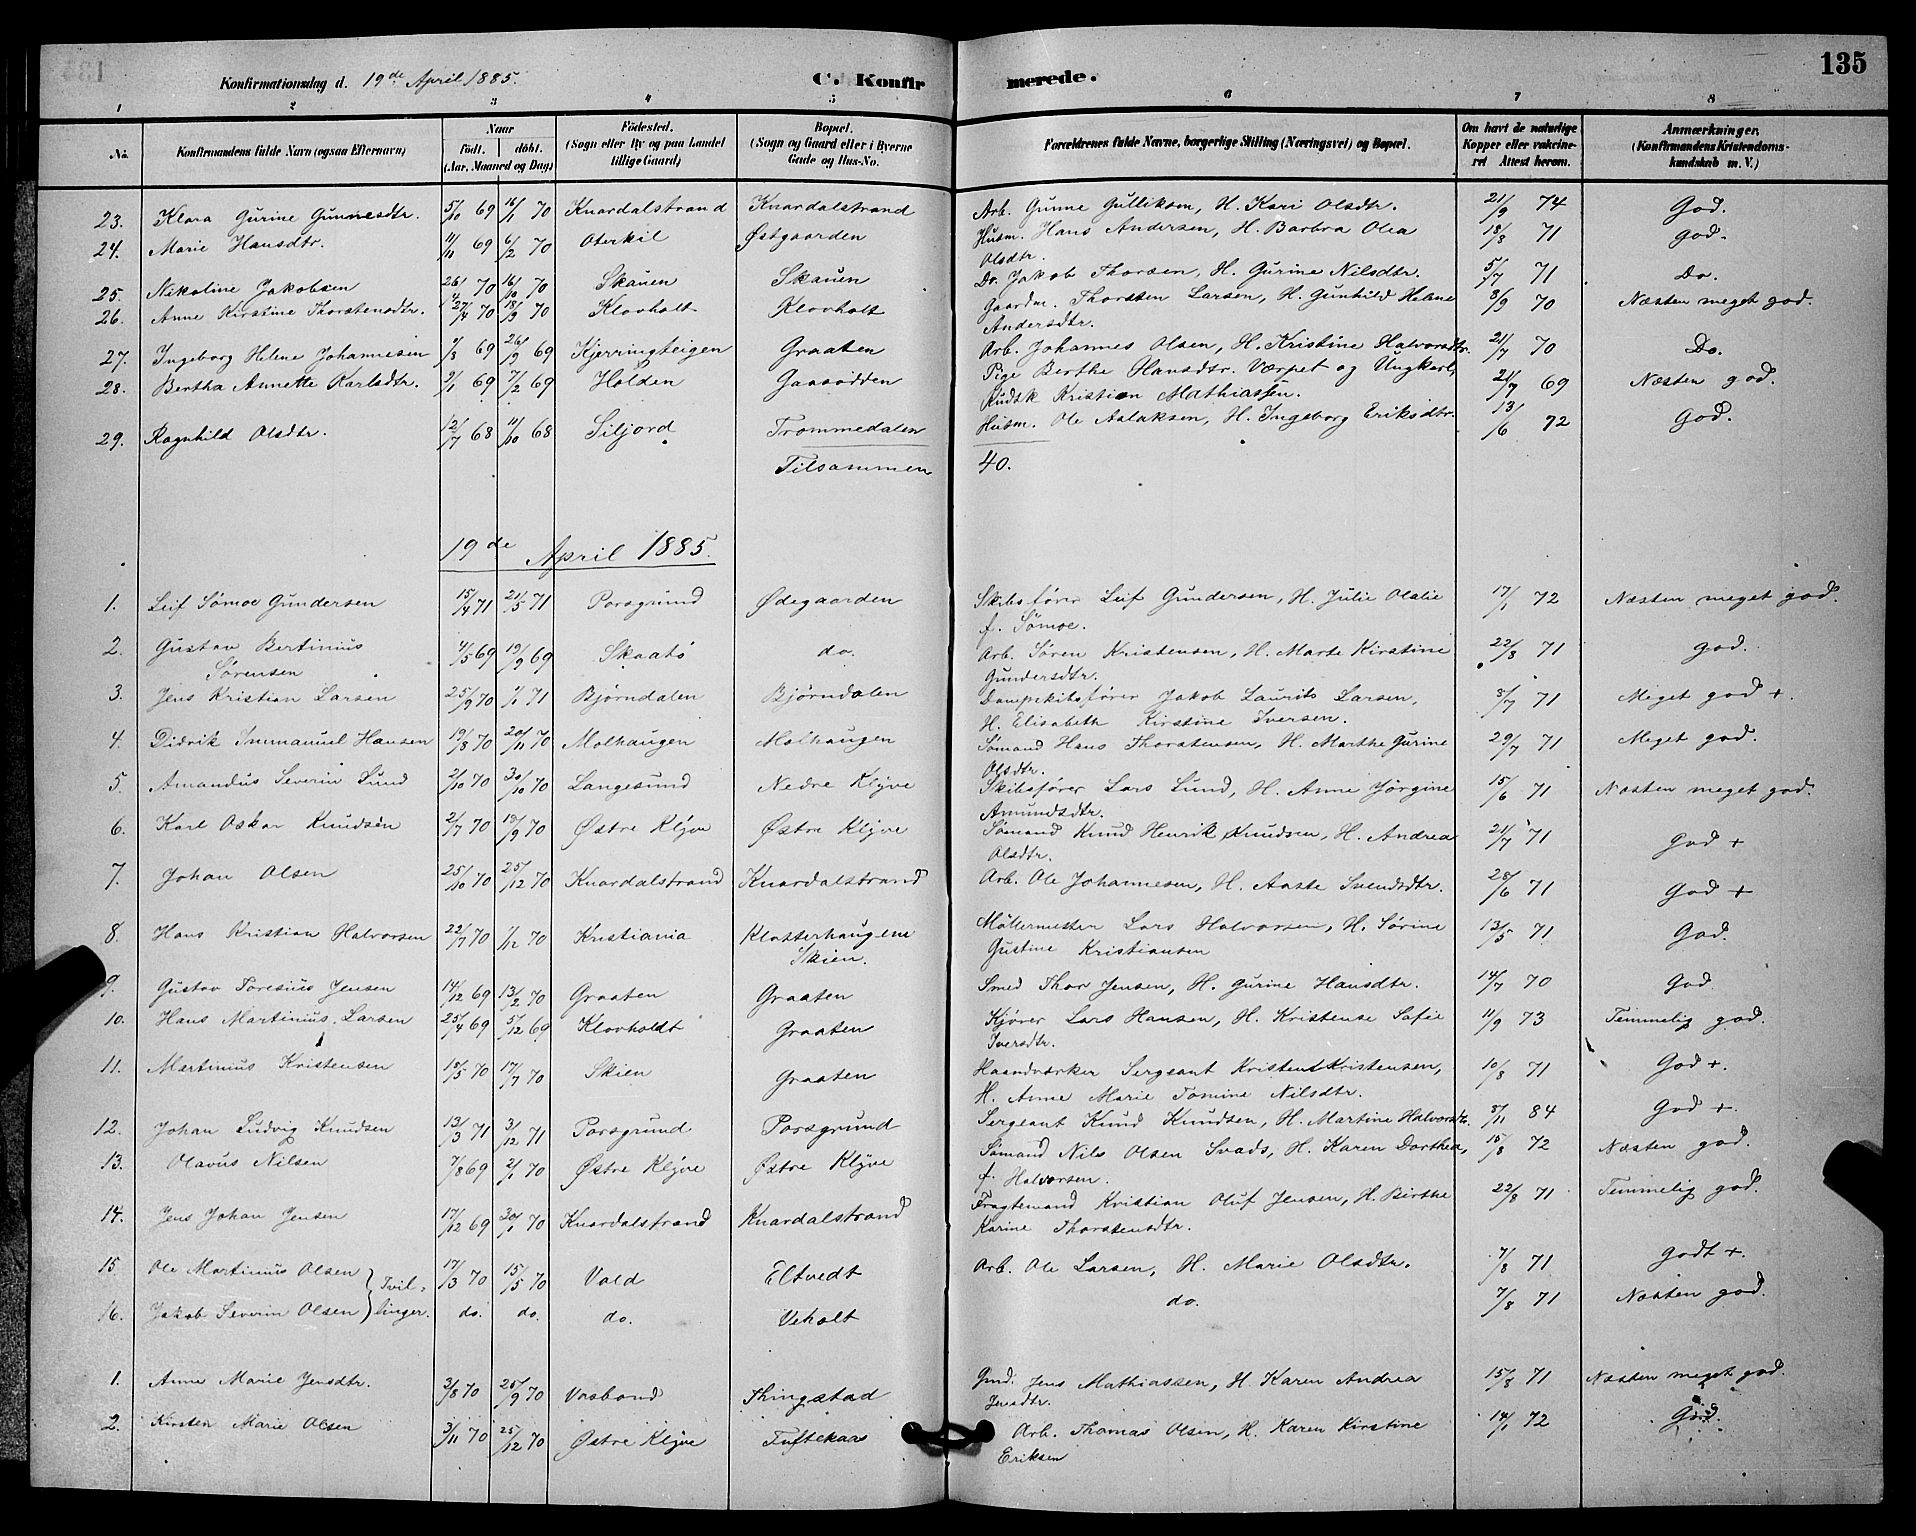 Konfirmationsdag d. 19de April 1885. C. Konfirmerede. 135
1 2 3 4 5 6 7 8
No. Konfirmandens fulde Navn (ogsaa Efternavn) Naar födt. döbt. (Aar, Maaned og Dag) Födested. (Sogn eller By og paa Landet tillige Gaard) Bopæl. (Sogn og Gaard eller i Byerne Gade og Hus-No. Forældrenes fulde Navne, borgerlige Stilling (Næringsvei) og Bopæl. Om havt de naturlige Kopper eller vakcineret Attest herom. Anmærkninger. (Konfirmandens Kristendomskundskab m. V.)
23. Klara Gurine Gunnesdtr. 5/10 69 16/1 70 Knardalstrand Knardalstrand Arb. Gunne Gulliksen, H. Kari Olsdtr. 21/9 74 God.
24. Marie Hansdtr. 11/11 69 6/2 70 Oterkil Østgaarden Husm. Hans Andersen, H. Barbra Olea Olsdtr. 18/8 71 God.
25. Nikoline Jakobsen 70 16/10 70 Skauen Skauen Do. Jakob Thorsen, H. Gurine Nilsdtr. 5/7 71 Do.
26. Anne Kirstine Thorstensdtr. 27/4 70 18/9 70 Klovholt Klovholt Gaardm. Thorsten Larsen, H. Gunhild Helene Andersdtr. 8/9 70 Næsten meget god.
27. Ingeborg Helene Johannesen 7/8 69 26/9 69 Kjerringteigen Graaten Arb. Johannes Olsen, H. Kristine Halvorsdtr. 21/7 70 Do.
28. Bertha Annette Karlsdtr. 2/1 69 7/2 69 Holden Gaasodden Pige Berthe Hansdtr. Værpet og Ungkarl, Rudsk Kristian Mathiassen. 21/7 69 Næsten god.
29. Ragnhild Olsdtr. 12/7 68 11/10 68 Siljord Trommedalen Husm. Ole Aslaksen, H. Ingeborg Eriksdtr. 13/6 72 God.
Tilsammen 40.
19de April 1885.
1. Leif Sömoe Gundersen 15/4 71 21/5 71 Porsgrund Ødegaarden Skibsfører Leif Gundersen, H. Julie Olalie f. Sömoe. 17/1 72 Næsten meget god.
2. Gustav Bertinius Sørensen 4/5 69 19/9 69 Skaatö do. Arb. Sören Kristensen, H. Marte Kirstine Gundersdtr. 22/8 71 god.
3. Jens Kristian Larsen 25/9 70 1/1 71 Björndalen Björndalen Dampskibsfører Jakob Laurits Larsen, H. Elisabeth Kirstine Iversen. 8/7 71 Meget god +.
4. Didrik Immanuel Hansen 19/8 70 20/11 70 Molhaugen Molhaugen Sömand Hans Thorstensen, H. Marthe Gurine Olsdtr. 29/7 71 Meget god.
5. Amandus Severin Lund 2/10 70 30/10 70 Langesund Nedre Klyve Skibsfører Lars Lund, H. Anne Jörgine Amundsdtr. 15/6 71 Næsten meget god.
6. Karl Oskar Knudsen 2/7 70 19/9 70 Østre Klyve Østre Klyve Sömand Knud Henrik Knudsen, H. Andrea Olsdtr. 21/7 71 God +
7. Johan Olsen 25/10 70 25/12 70 Knardalstrand Knardalstrand Arb. Ole Johannesen, H. Aaste Svendsdtr. 28/6 71 God +
8. Hans Kristian Halvorsen 22/7 70 1/12 70 Kristiania Klosterhaugene Skien. Möllermester Lars Halvorsen, H. Sörine Gustine Kristiansen 13/5 71 God.
9. Gustav Toresius Jensen 14/12 69 13/2 70 Graaten Graaten Smed Thor Jensen, H. Gurine Hansdtr. 14/7 70 God.
10. Hans Martinius Larsen 25/4 69 5/12 69 Klovholdt Graaten Kjører Lars Hansen, H. Kristense Sofie Iversdtr. 11/9 73 Temmelig god.
11. Martinius Kristensen 15/5 70 17/7 70 Skien Graaten Haandværker Sergeant Kristen Kristensen, H. Anne Marie Tomine Nilsdtr. 10/8 71 God +.
12. Johan Ludvig Knudsen 13/3 71 3/12 71 Porsgrund Porsgrund Sergeant Knud Knudsen, H. Martine Halvorsdtr. 8/11 84 God +.
13. Olavus Nilsen 7/8 69 2/1 70 Østre Klyve Østre Klyve Sömand Nils Olsen Svads, H. Karen Dorthea, f. Halvorsen. 15/8 72 Næsten god.
14. Jens Johan Jensen 17/12 69 30/1 70 Knardalstrand Knardalstrand Fragtemand Kristian Oluf Jensen, H. Birthe Karine Thorstensdtr. 22/8 71 Temmelig god.
15. Ole Martinius Olsen } Tvil- 17/3 70 15/5 70 Vold Eltvedt Arb. Ole Larsen, H. Marie Olsdtr. 7/8 71 Godt +.
16. Jakob Severin Olsen } linger. do. do. do. Veholt do. 7/8 71 Næsten god.
1. Anne Marie Jensdtr. 3/8 70 25/9 70 Vasbond Thingstad Gmd. Jens Mathiassen, H. Karen Andrea Jensdtr. 15/8 71 Næsten meget god.
2. Kirsten Marie Olsen 3/11 70 25/12 70 Østre Klyve Tuftekaas Arb. Thomas Olsen, H. Karen Kirstine Eriksen 14/1 72 God.